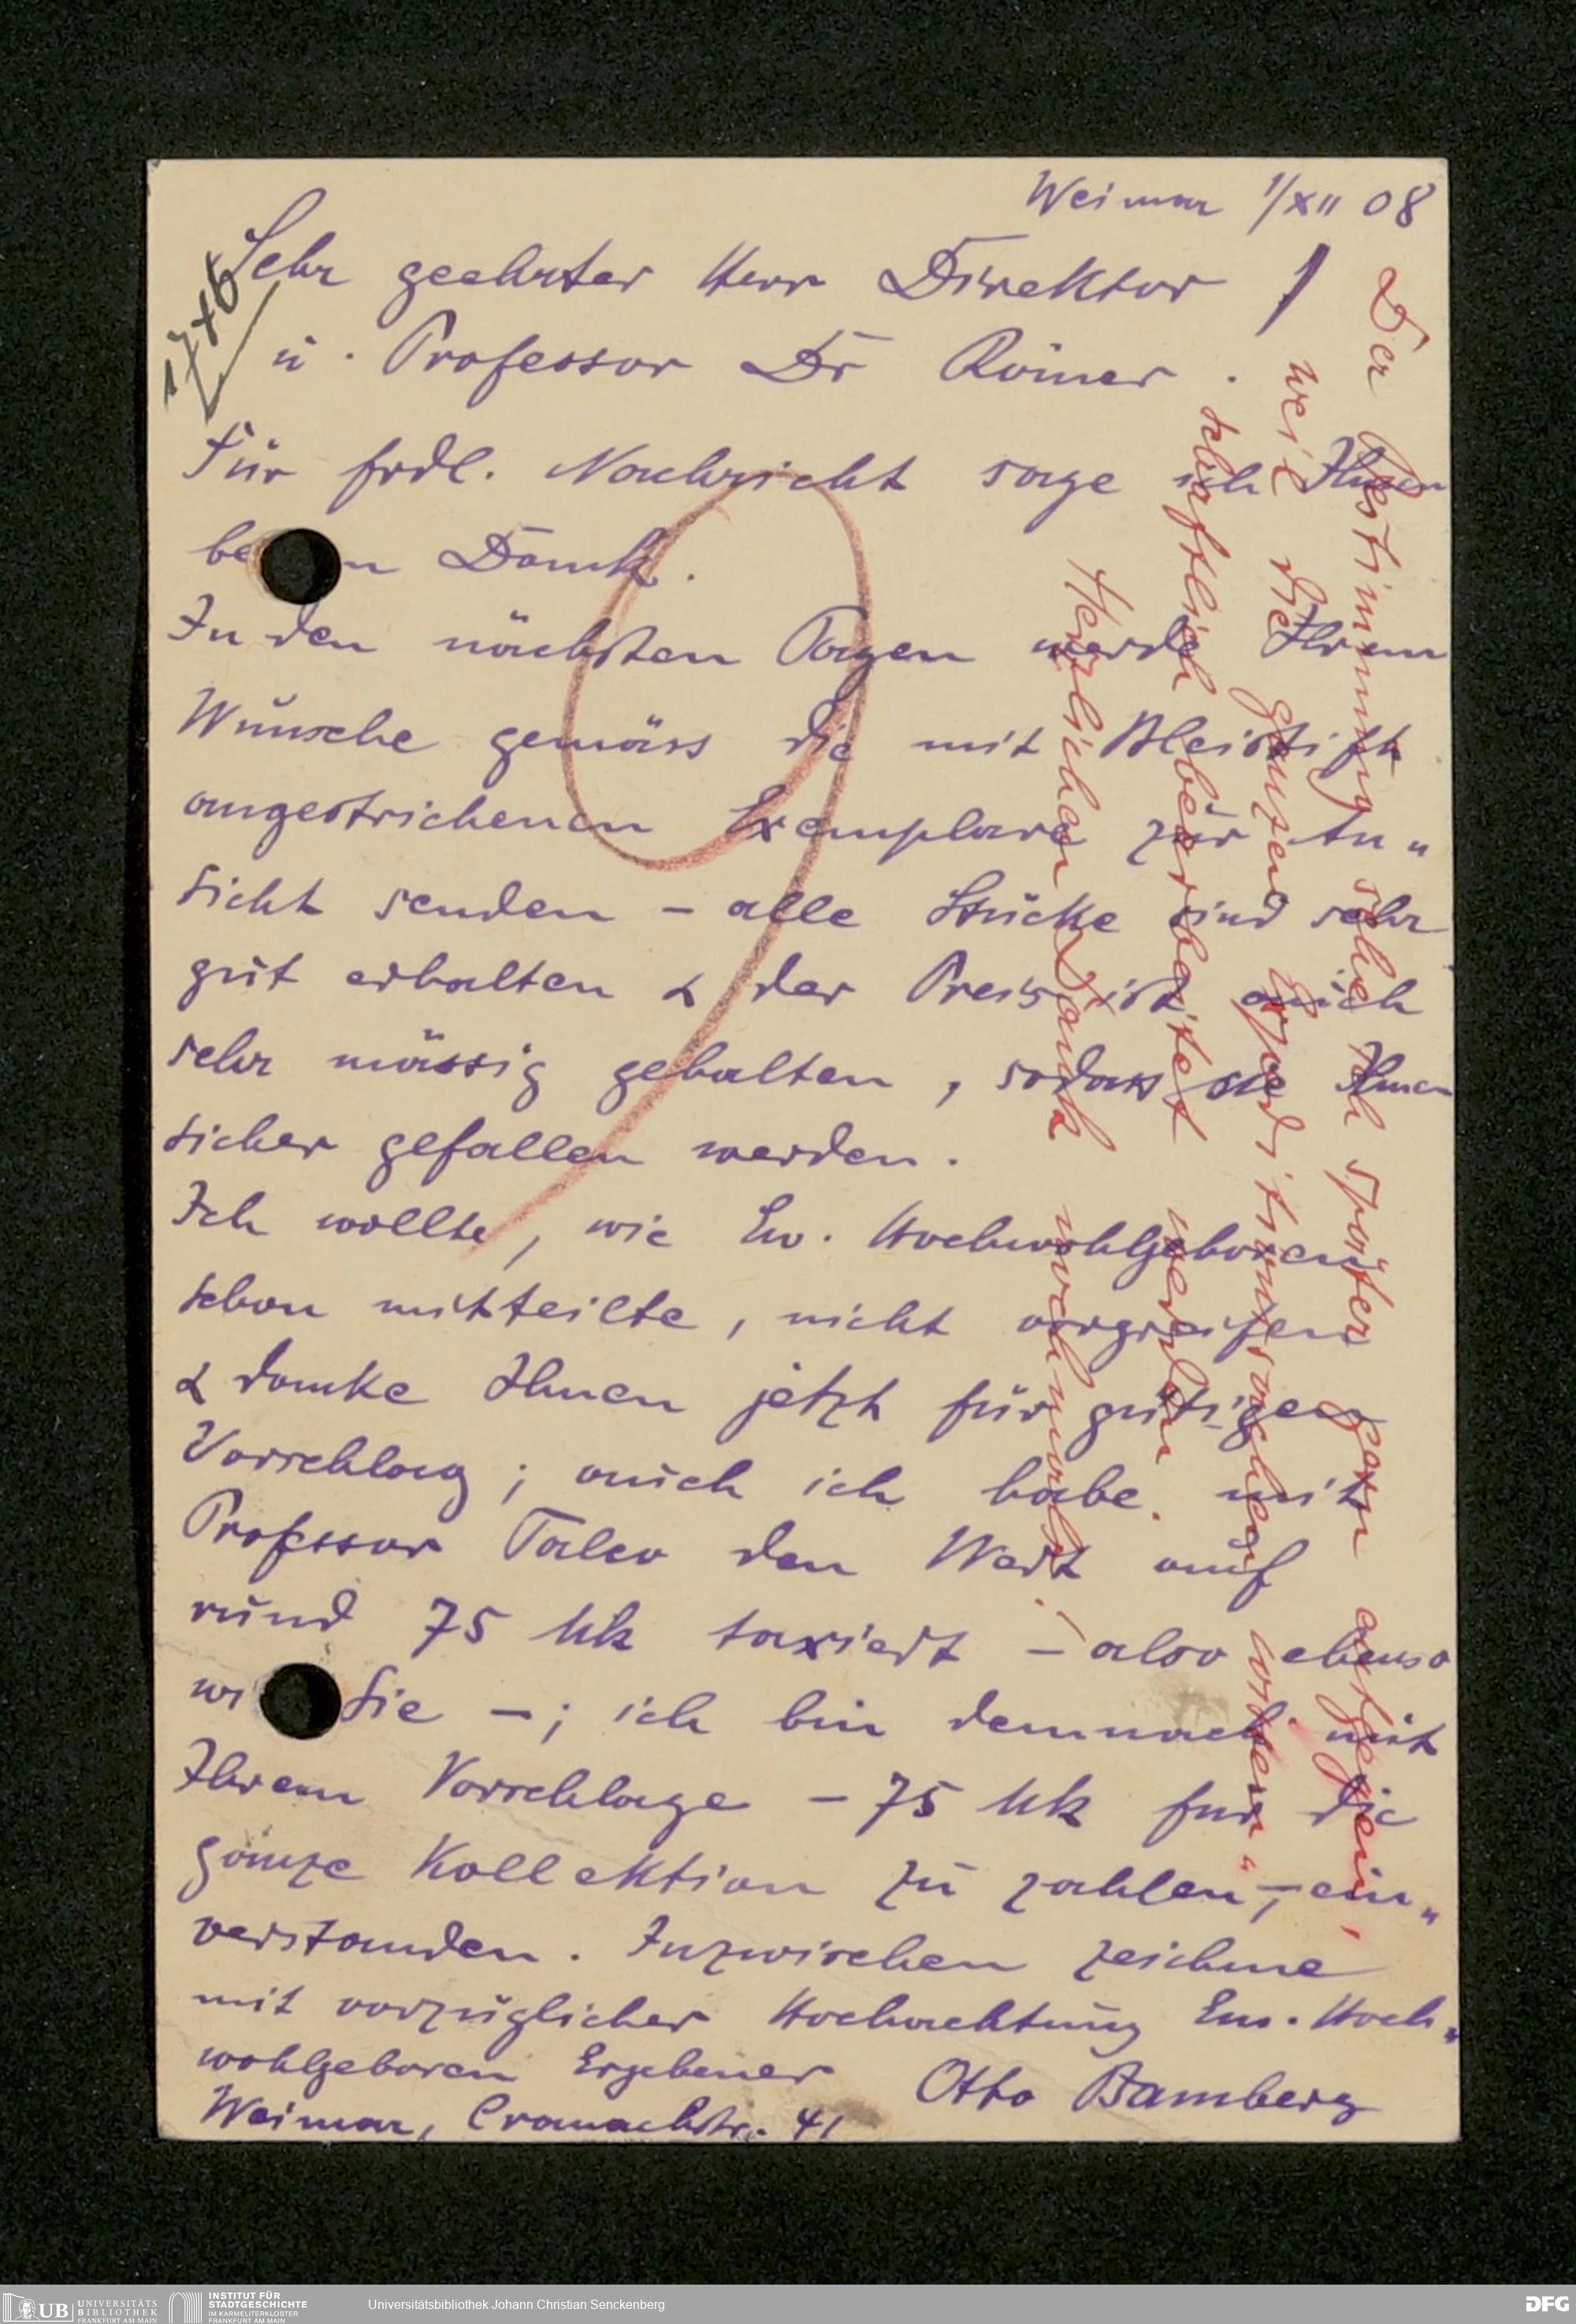 Weimar 1/XII 08
1746
Sehr geehrter Herr Direktor
u. Professor Dr Römer.
Für frdl. Nachricht sage ich Ihnen
be n Dank.
In den nächsten Tagen werde Ihrem
Wunsche gemäss die mit Bleistift
angestrichenen Exemplare zur An„
sicht senden – alle Stücke sind sehr
gut erhalten & der Preis ist auch
sehr mässig gehalten, sodass sie Ihnen
sicher gefallen werden.
Ich wollte, wie Ew. Hochwohlgeboren
schon mitteilte, nicht vorgreifen
& danke Ihnen jetzt für gütigen
Vorschlag; auch ich habe mit
Professor den Wert auf
rund 75 Mk taxiert – also ebenso
wi Sie –; ich bin demnach mit
Ihrem Vorschlage – 75 Mk fur die
ganze Kollektion zu zahlen –, ein„
verstanden. Inzwischen zeichne
mit vorzüglicher Hochachtung Ew. Hoch„
wohlgeboren Ergebener Otto Bamberg
Weimar, Cranachstr. 41
Der Bestimmung sehe ich später gern entgegen,
weil die ganzen Expeditionssachen wissen„
schaftlich bearbeitet werden
Herzlichen Dank nochmals!
UB UNIVERSITÄTS
BIBLIOTHEK
FRANKFURT AM MAIN
INSTITUT FÜR
STADTGESCHICHTE
IM KARMELITERKLOSTER
FRANKFURT AM MAIN
Universitätsbibliothek Johann Christian Senckenberg
DFG